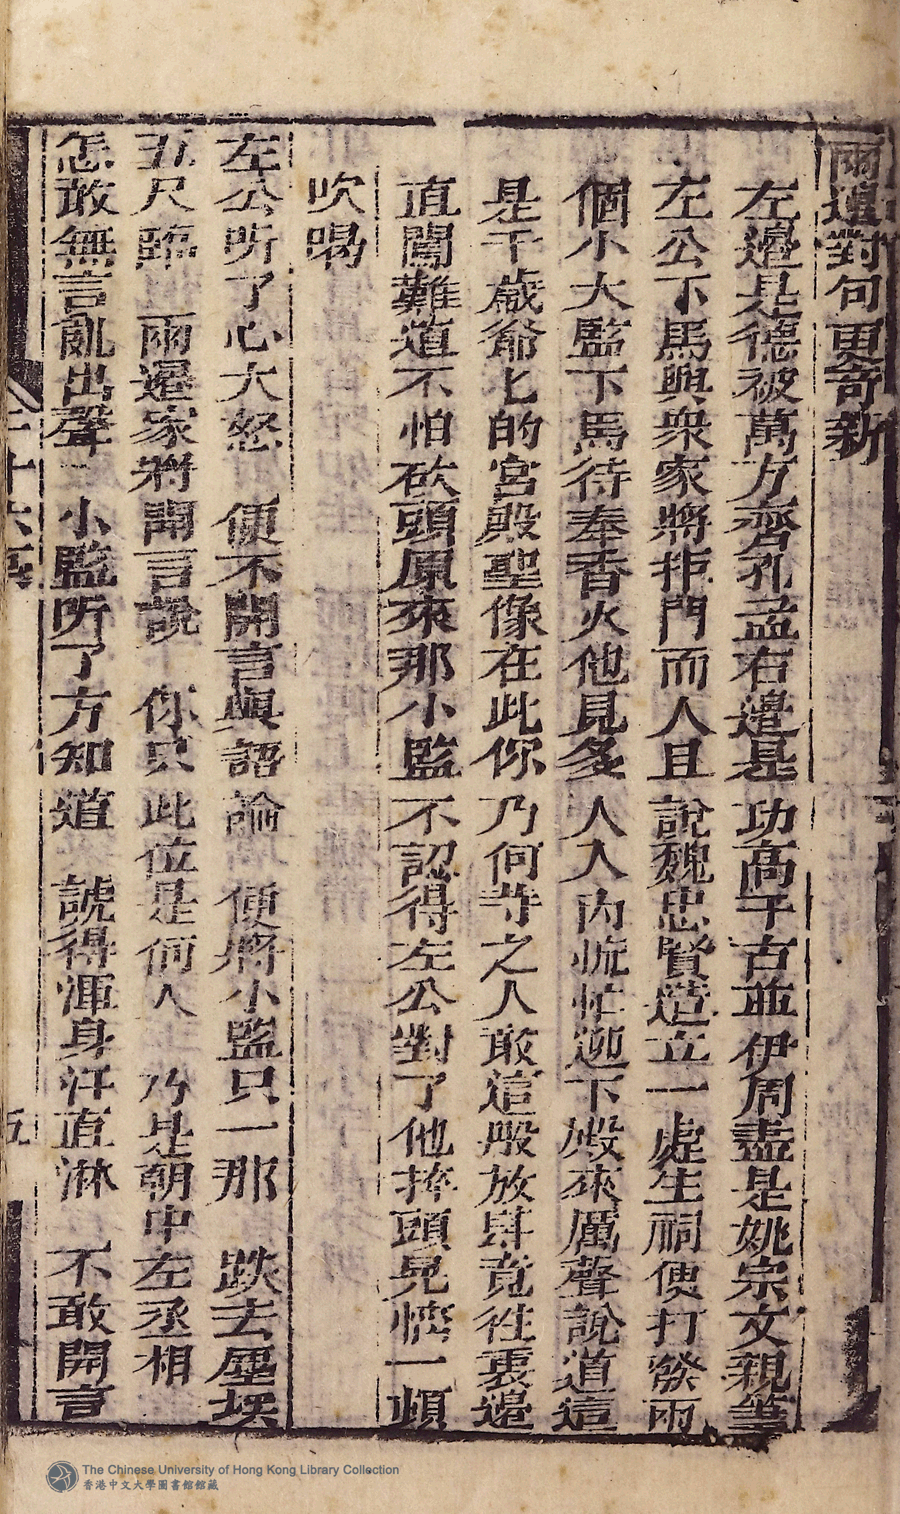 兩邊對句更奇新
左邊是德被萬方齊孔孟右邊是功高千古並伊周盡是姚宗文親筆
左公下馬與衆家將拒門而人且說魏忠賢造立一處生祠便打發兩
個小太監下馬待奉香火他見多人入內慌忙迎下殿來厲聲說道這
是千歲爺匕的宮殿聖像在此你乃何等之人敢這般放肆竟徃裏邊
直闖難道不怕砍頭原來那小監不認得左公對了他摔頭晃惱一頓
吹喝
左公听了心大怒 便不開言與語論 便將小監只一那 跌去塵埃
五尺臨 兩邊家將開言說 你只此位是何人 乃是朝中左丞相
怎敢無言亂出聲 小監听了方知道 諕得渾身汗直淋 不敢開言
二十六
五
The Chinese University of Hong Kong Library Collection
香港中文大學圖書館館藏